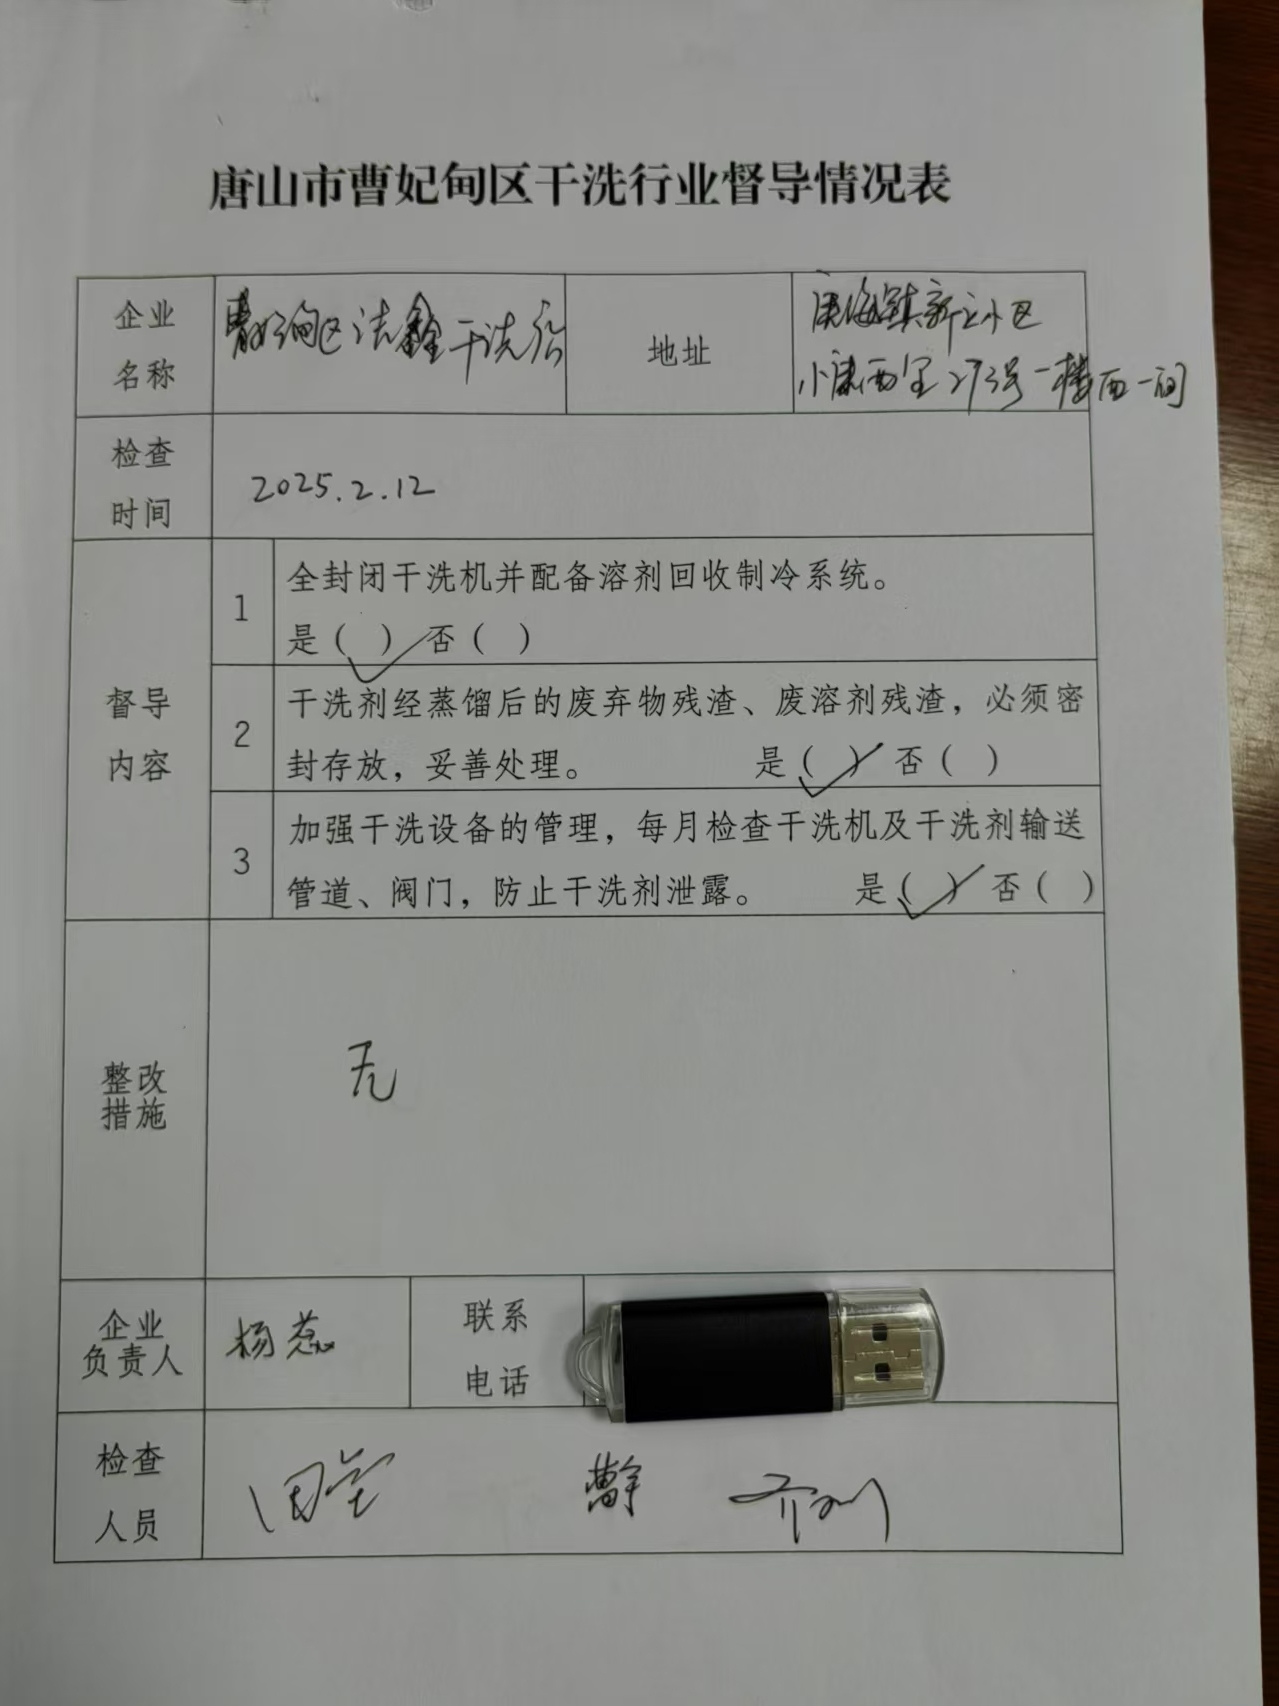 唐山市曹妃甸区干洗行业督导情况表
企业名称
曹妃甸区洁鑫干洗店
地址
唐海镇新立小区
小康西里293号一楼西一间
检查时间
2025.2.12
督导内容
1
全封闭干洗机并配备溶剂回收制冷系统。
是（ ）否（ ）
2
干洗剂经蒸馏后的废弃物残渣、废溶剂残渣，必须密
封存放，妥善处理。 是（ ）否（ ）
3
加强干洗设备的管理，每月检查干洗机及干洗剂输送
管道、阀门，防止干洗剂泄露。 是（ ）否（ ）
整改措施
无
企业负责人
杨蕊
联系电话
检查人员
曹宇